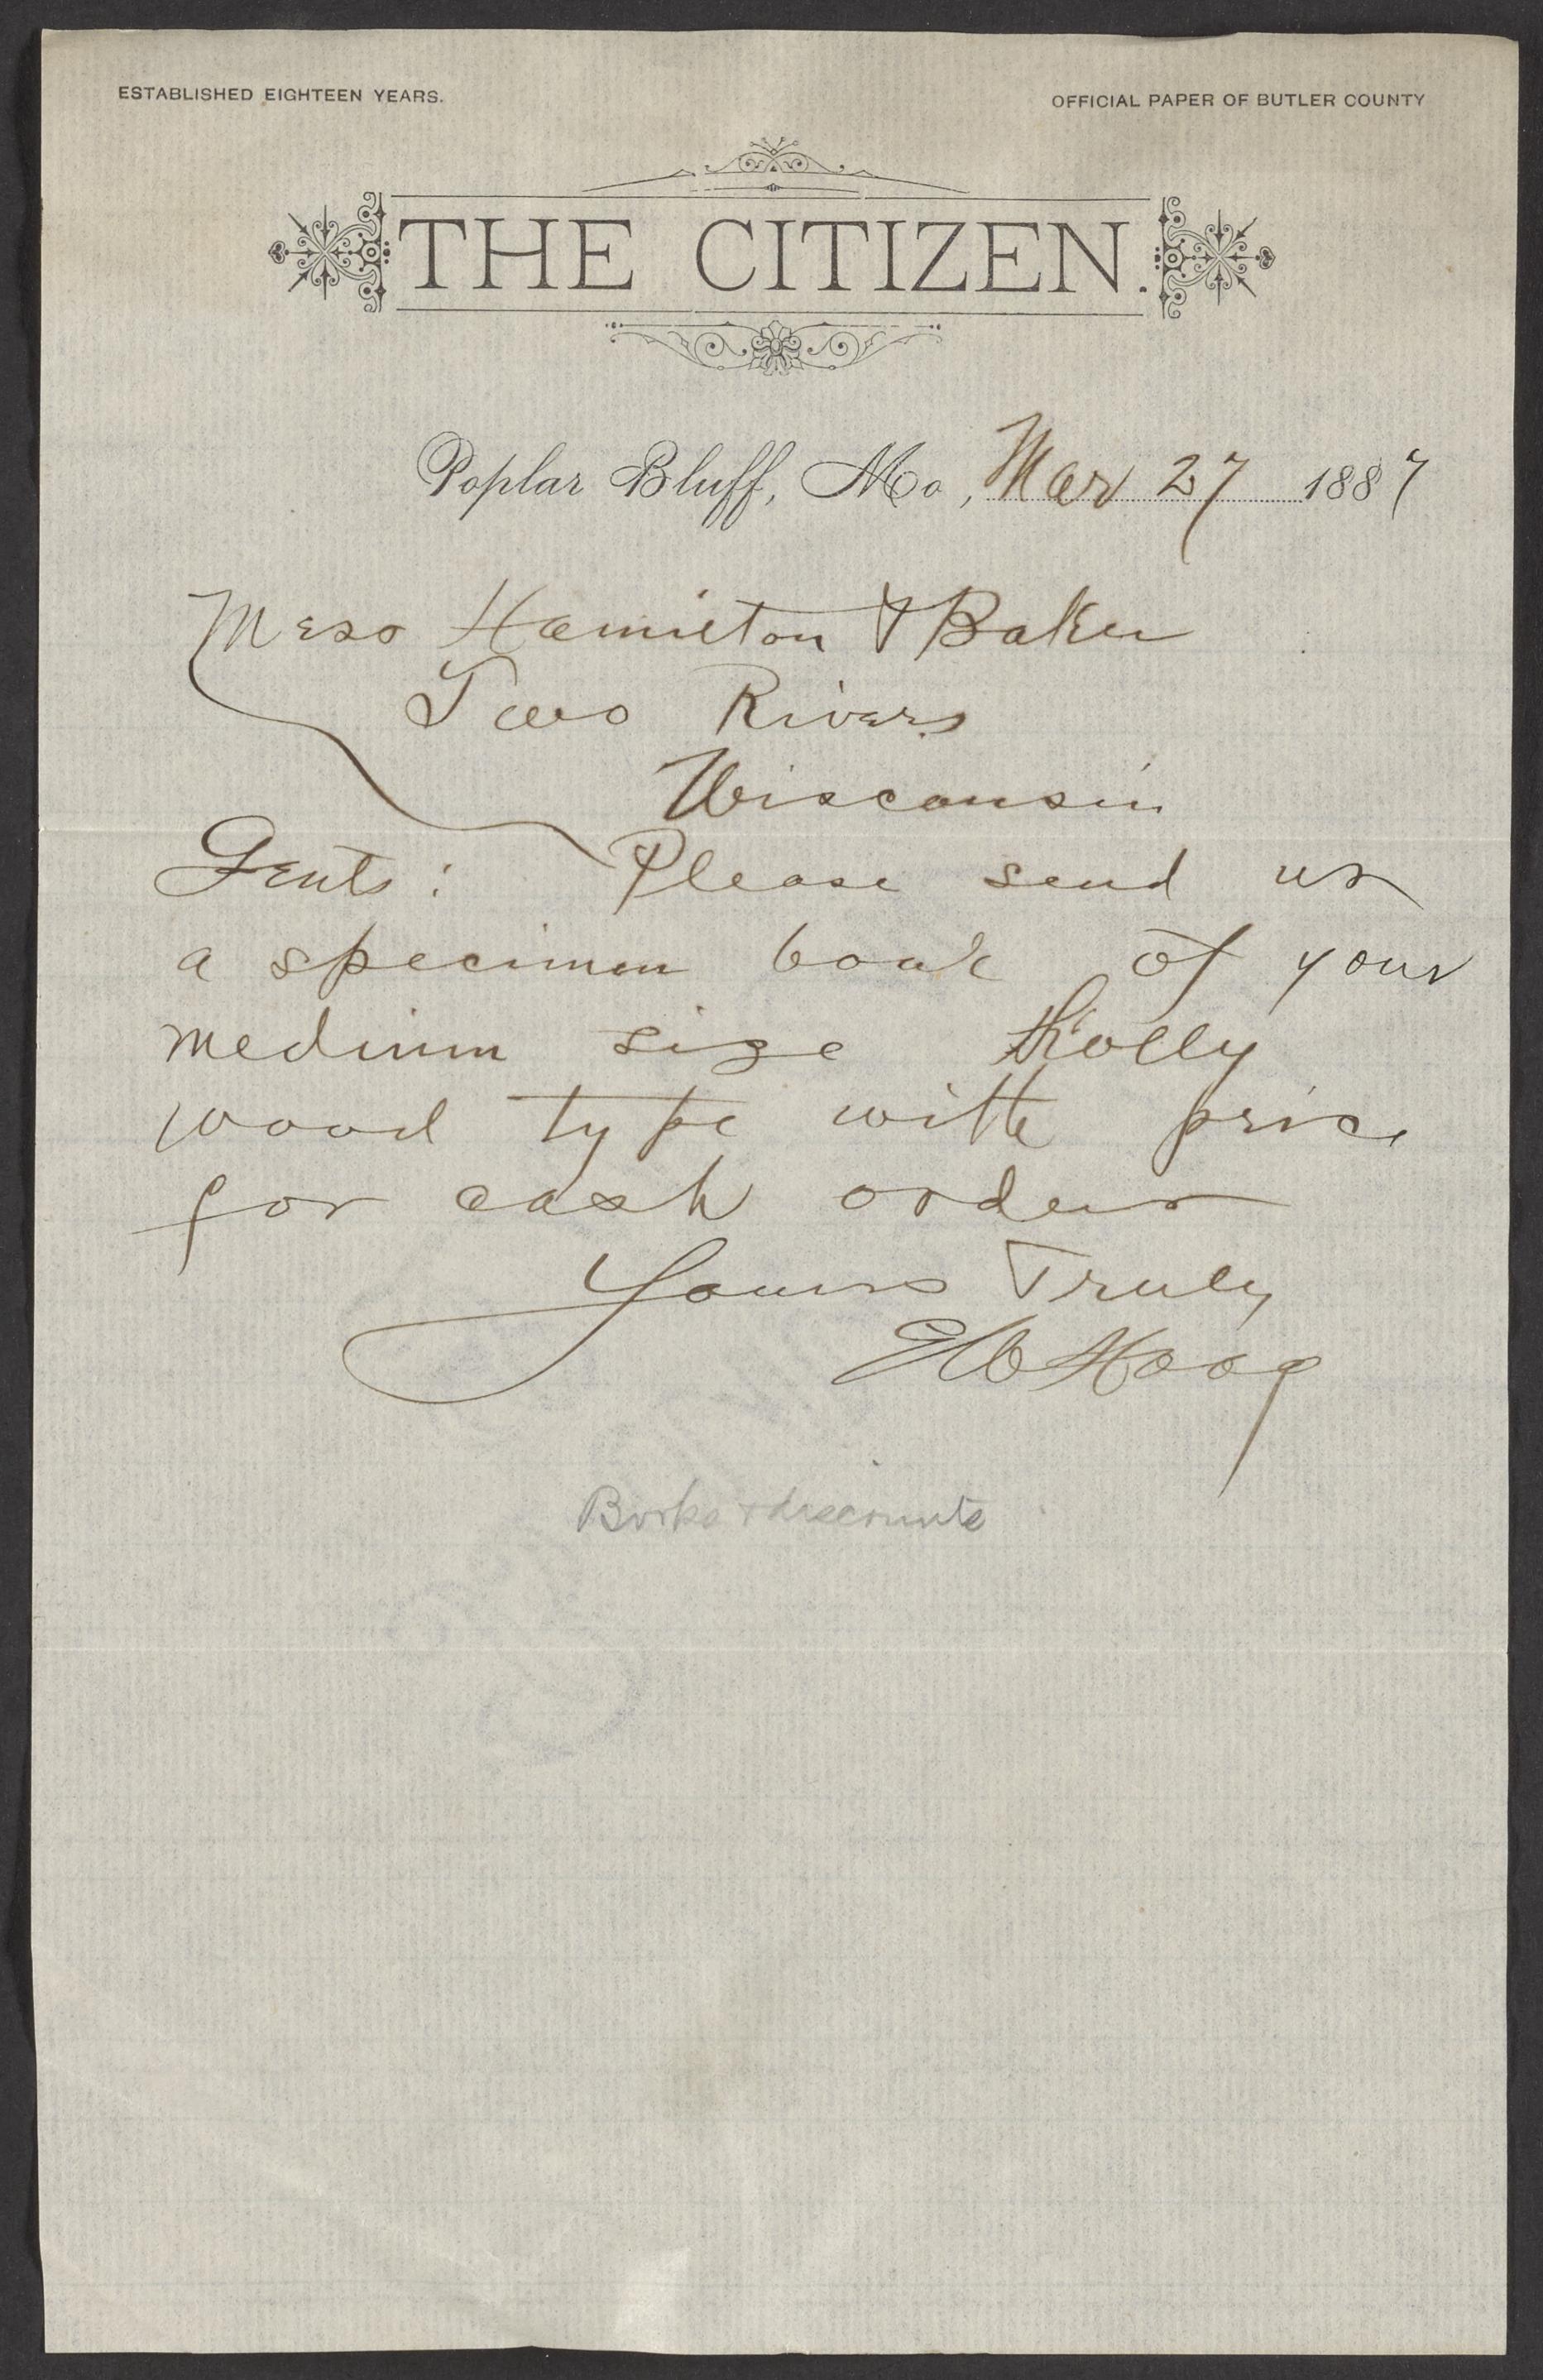 ESTABLISHED EIGHTEEN YEARS.
OFFICIAL PAPER OF BUTLER COUNTY
THE CITIZEN.
Poplar Bluff, Mo, Mar 27 1887
Mess Hamilton & Baker
Two Rivers
Wisconsin
Gents: Please send us
a specimen book of your
medium size Holly
wood type with price
for cash orders
Yours Truly
Hogg
Books & discounts